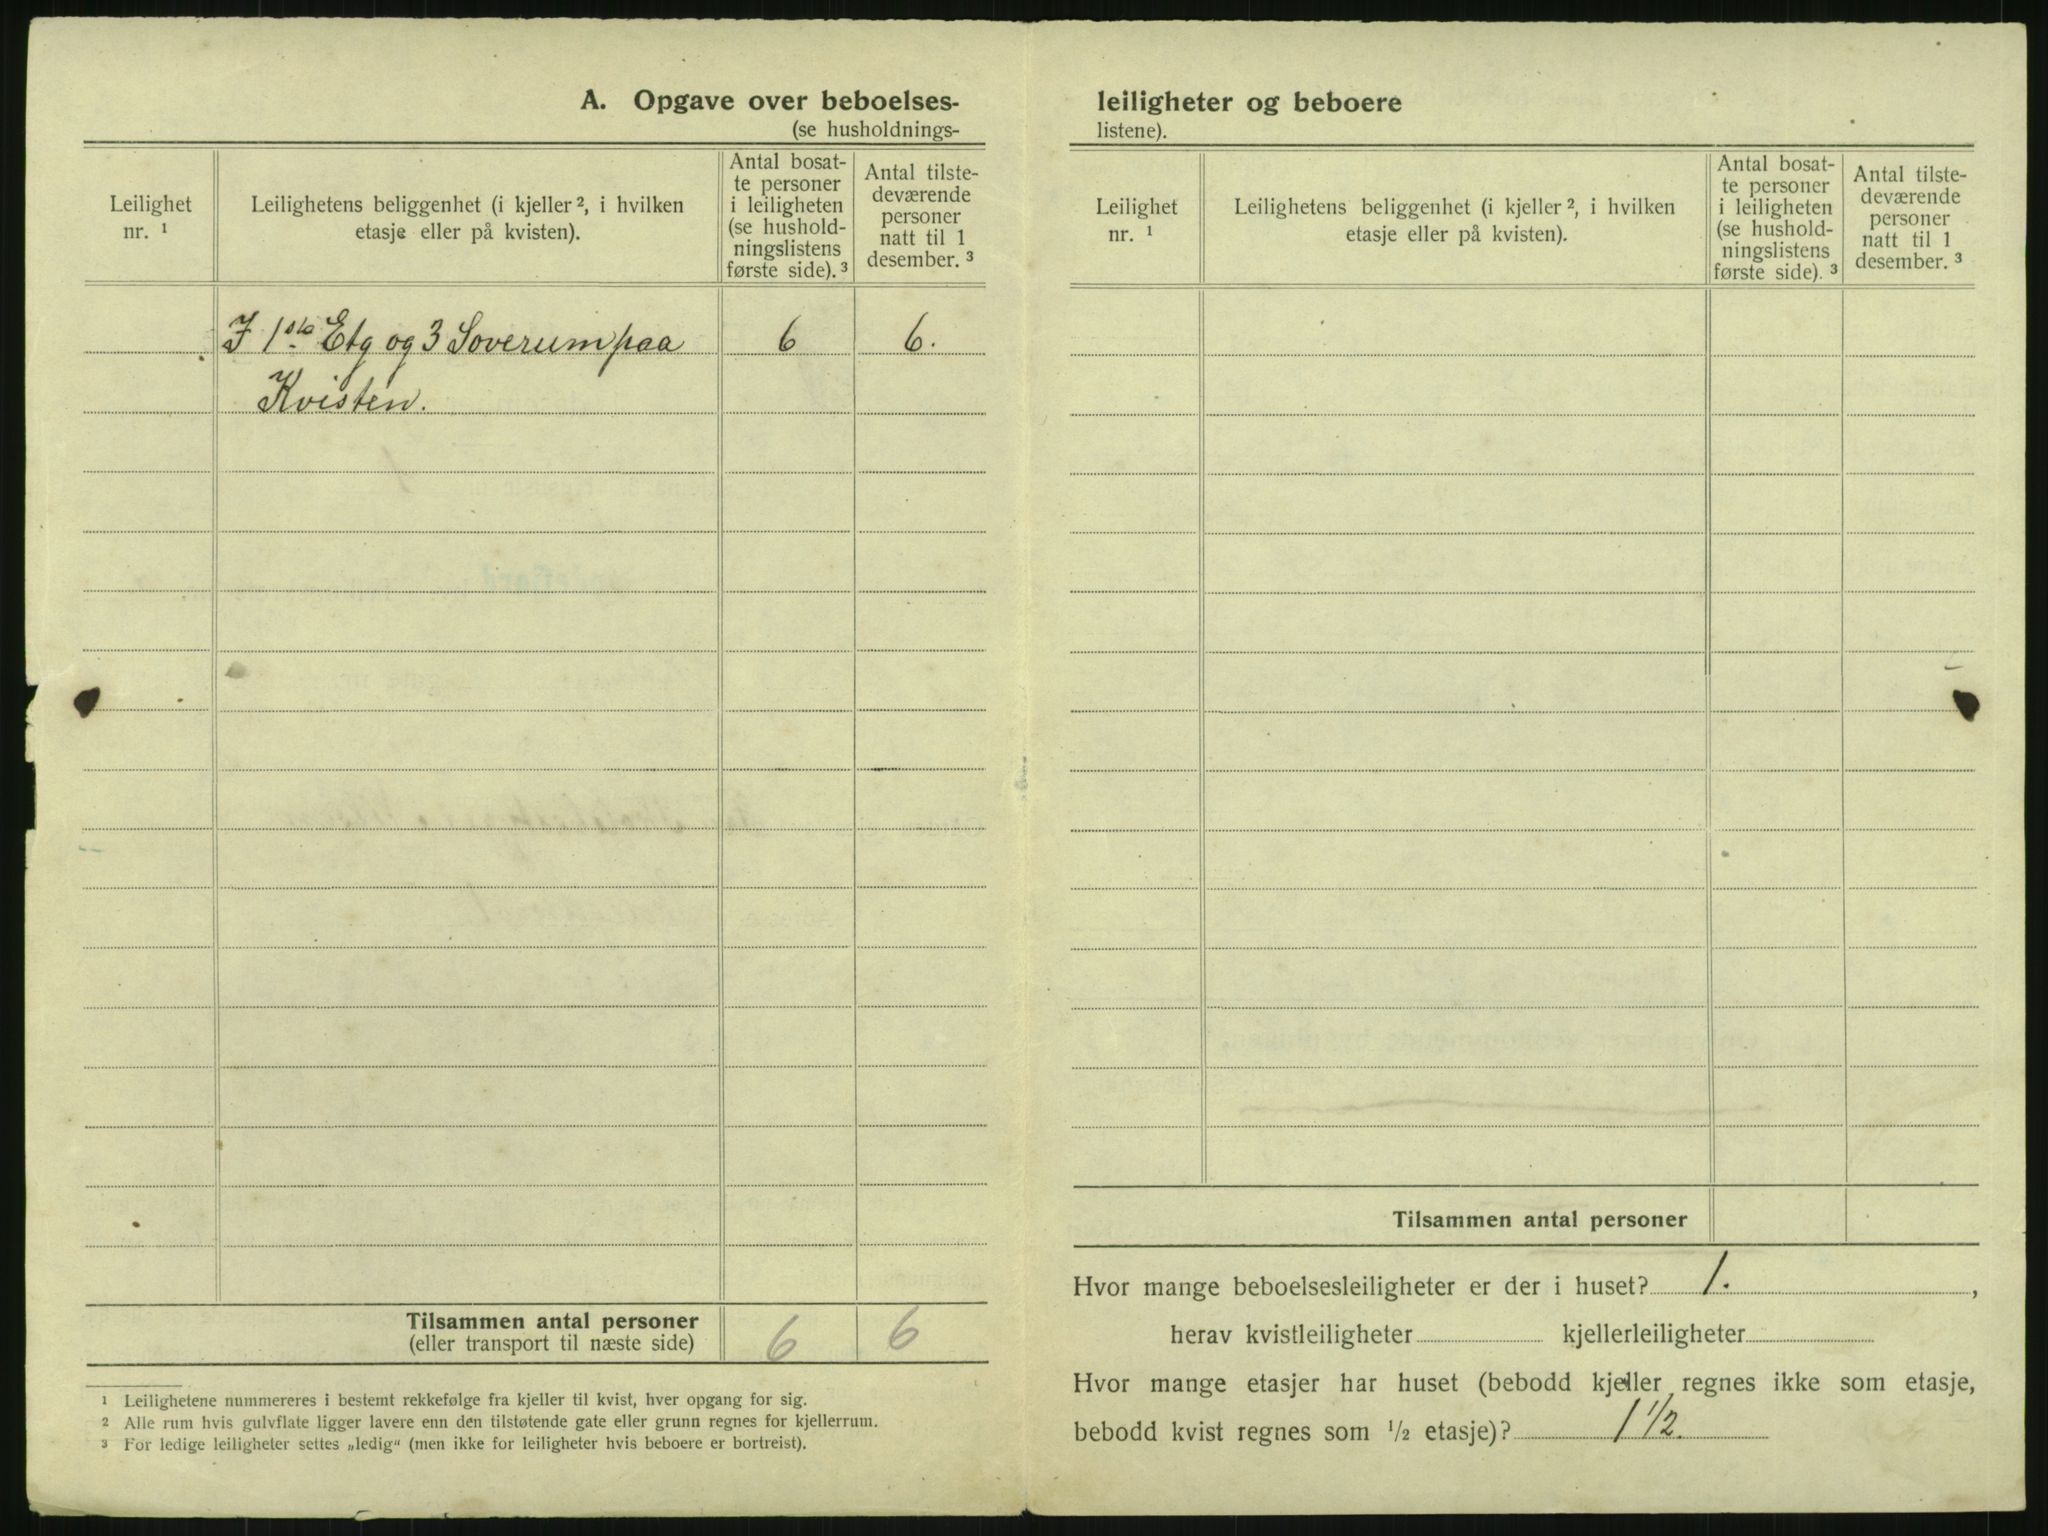 A. Opgave over beboelses-
(se husholdnings-
Leilighet
nr. ¹
Leilighetens beliggenhet (i kjeller ², i hvilken
etasje eller på kvisten).
Antal bosat-
te personer
i leiligheten
(se hushold-
ningslistens
første side). ³
Antal tilste-
deværende
personer
natt til 1
desember. ³
I 1ste Etg og 3 Soverum paa 6 6.
Kvisten.
Tilsammen antal personer
(eller transport til næste side) 6 6
¹ Leilighetene nummereres i bestemt rekkefølge fra kjeller til kvist, hver opgang for sig.
² Alle rum hvis gulvflate ligger lavere enn den tilstøtende gate eller grunn regnes for kjellerrum.
³ For ledige leiligheter settes „ledig“ (men ikke for leiligheter hvis beboere er bortreist).
leiligheter og beboere
listene).
Leilighet
nr. ¹
Leilighetens beliggenhet (i kjeller ², i hvilken
etasje eller på kvisten).
Antal bosat-
te personer
i leiligheten
(se hushold-
ningslistens
første side). ³
Antal tilste-
deværende
personer
natt til 1
desember. ³
Tilsammen antal personer
Hvor mange beboelsesleiligheter er der i huset? 1. ,
herav kvistleiligheter kjellerleiligheter
Hvor mange etasjer har huset (bebodd kjeller regnes ikke som etasje,
bebodd kvist regnes som ½ etasje)? 1 1/2.